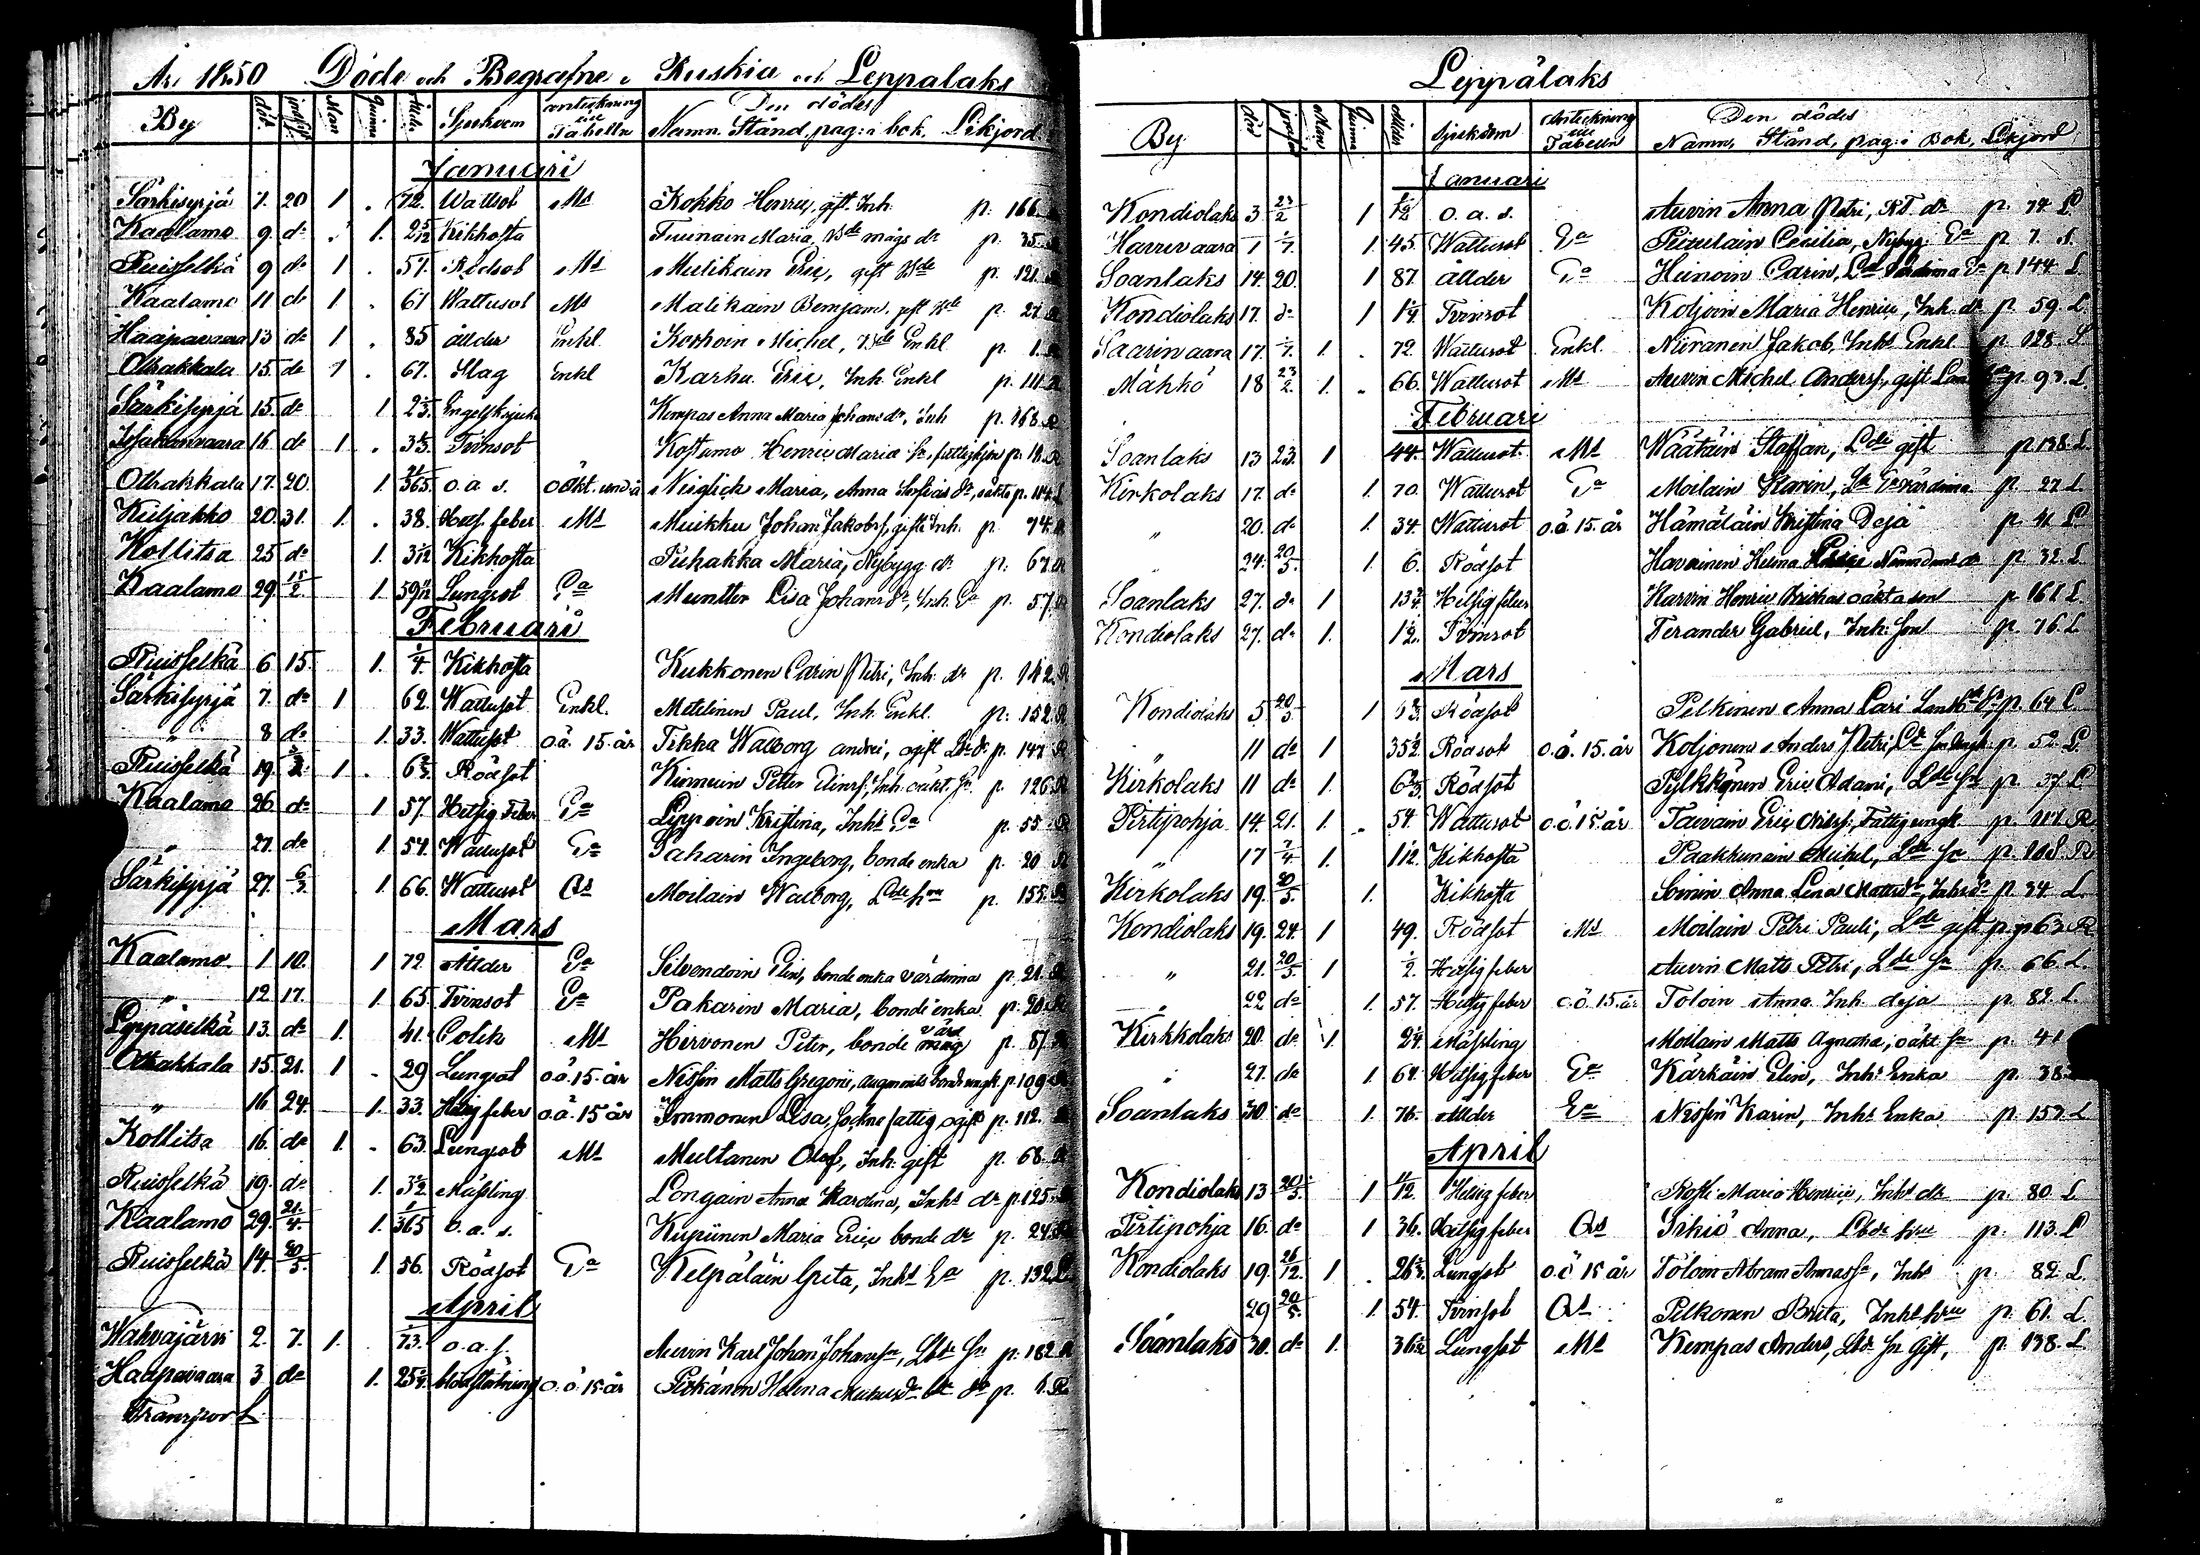 År 1850 Döde och Begrafne i Ruskia och Leppälaks
By död. jordf. Man Quinna ålder Sjukdom anteckning till Tabelln Den dödes Namn, Stånd, pag: i bok, Likjord
Januari
Särkisyrjä 7. 20 1 . 72. Wattsot Ms Kokko Henric, gift. Inh. p. 166.
Kaalamo 9 do . 1. 2 5/12 Kikhosta Maria, Bde mågs dr p. 35.
Ruisselkä 9 do 1 . 57. Rödsot Ms Mutikain Eric, gift Bde p. 121.
Kaalamo 11 do 1 . 61 Wattusot Ms Matikain Benjam. gift Bde p. 27.
Haapavaara 13 do 1 . 85 ålder Enkl Korhoin Michel, Bde Enkl p. 1.
Otrakkala 15. do 1 . 67. Slag Enkl Karhu Eric, Inh. Enkl p. 111.
Särkisyrjä 15. do 1 Engelsksjuka Kempas Anna Maria Johans dr, Inh p. 168. R
16 do 1 . Tvinsot Kostamo Henric p. 18. R
Otrakkala 17. 20. 1. 21/365 o.a s. oäkt. Neiglick Maria, Anna Sofias dr, oäkta p. 114.
Kuljakko 20. 31. 1. . 38. Hets. feber Ms Muikku Johan Jakobss, gift Inh. p. 74.
Kollitsa 25 do 1. 3 1/12 Kikhosta Puhakka Maria, Nybygg. dr p. 67.
Kaalamo 29 15/2 1. 59 Lungsot Ea Muntter Lisa Johans dr, Inh. Ea p. 57.
Februari
Ruisselkä 6 15. 1. 1/4. Kikhosta Kukkonen Carin Petri, Inh. dr p. 142.
Särkisyrjä 7. do 1 62. Wattusot Enkl. Mielinen Paul, Inh. Enkl. p. 152. R
" 8 do 1. 33. Wattusot o.ö. 15. år Tikka Walborg andri, ogift p. 147. R
Ruisselkä 19. 1 . 6 2/3. Rödsot Kinnuin Petter Inh. oäkt. Sn p. 126.
Kaalamo 26 do 1 57. Hetsig Feber Ea Leppoin Kristina, Inhs Ea p. 55.
" 27. do 1 57. Wattusot Ea Paharin Ingeborg, bonde enka p. 20 R
Särkisyrjä 27. 6/3. 1 66. Wattusot Qs Moilain Walborg, Lde hru p. 155.
Mars
Kaalamo 1 10. 1 72. Ålder Ea Silvendoin Elin, bonde enka värdinna p. 21.
" 12 17. 1. 65. Tvinsot Ea Pakarin Maria, bonde enka p. 20.
Leppäselkä 13. do 1. 41. Colik Ms Hirvonen Peter, bonde måg p. 87.
Otrakkala 15. 21. 1 . 29 Lungsot o.ö. 15. år Nissin Matts Gregorii, bonde p. 109
" 16 24. 1. 33. Hetsig feber o.ö. 15 år Immonen Lisa, sockne fattig ogift p. 112.
Kollitsa 16. do 1. . 63. Lungsot Ms Multanen Olof, Inh. gift p. 68.
Ruisselkä 19. do 1. 3 1/2 Mässling Longain Anna Inhs dr p. 125.
Kaalamo 29. 21/4. 1. 1/365 o. a. s. Kupiinen Maria Erics bonde dr p. 24.
Ruisselkä 14. 20/5 1. 56. Rödsot Ea Kelpäläin Greta, Inhs Ea p. 132.
April
Wahvajärvi 2. 7. 1. 1/73. o.a.s. Auvin Karl Johan Johans Sn, Sn p. 182.
Haapavaara 3 do 1. 25 o.ö. 15 år Pirkänen Helena p. 4. R
Transport
Leppälaks
By död jordf. Man Quinna ålder Sjukdom Anteckning till Tabelln Den dödes Namn, Stånd, pag: i Bok, Likjord
Januari
Kondiolaks 3 23/2 1 1/2 o. a. s. Auvin Anna Petri, dr p. 74 L
Havuvaara 1 1/7. 1 45. Wattusot Ea Cecilia, Nybyg. Ea p. 7.
Soanlaks 14. 20. 1 87. ållder Ea Heinoin Carin, Värdinna Ea p. 144 L.
Kondiolaks 17. do 1 Tvinsot Koljoin Maria Henrici, Inh. dr p. 59. L
Saarivaara 17. 1. . 72. Wattusot Enkl. Niiranen Jakob, Inhs Enkl p. 128. L
Mähkö 18 23/2. 1. . 66. Wattusot Ms Auvin Michel Anderss, gift p. 93. L
Februari
Soanlaks 13 23. 1 44. Wattusot. Ms Wäätäin Staffan, Lde gift p. 138. L
Kirkolaks 17. do 1. 70. Wattusot Ea Moilain Karin, värdinna p. 27 L.
" 20. do 1. 34. Wattusot o.ö. 15. år Hämäläin Kristina Deja p. 41 L
" 24. 20/5. 1. 6. Rödsot Havoinen Helena p. 32. L
Soanlaks 27. do 1 13 Hetsig feber Karvin Henric oäkta son p. 161 L.
Kondiolaks 27. do 1. 1/2. Tvinsot Terander Gabriel, Inh. Son p. 76. L
Mars
Kondiolaks 5 20/5 1 Rödsot Pelkinen Anna Lari p. 64 L.
" 11 do 1 35 1/2 Rödsot o.ö. 15. år Koljonen Anders Petri, p. 52. L.
Kirkolaks 11 do 1. 6 2/3. Rödsot Pylkkänen Eric Adami, Lde Sn p. 37. L
Pirtipohja 14. 21. 1. . 54. Wattusot o.ö. 15. år Taivain Eric Nilss, p. 111. R
" 17 7/4 1. 1 1/12. Kikhosta Paakkunain Mickel, Lde Sn p. 108. R
Kirkolaks 19. 20/5. 1. Kikhosta Soinin Anna Lena Mattsdr, Inhs dr p. 34 L.
Kondiolaks 19. 24. 1 49. Rödsot Ms Moilain Petri Pauli, Lde gift p. 63. R
" 21. 20/5 1 1/2. Hetsig feber Auvin Matts Petri, Lde Sn p. 66. L.
" 22 do 1. 57. Hetsig feber o.ö. 15. år Toloin Anna Inh. deja p. 82. L.
Kirkkolaks 20. do 1 2 1/4 Mässling Moilain Matts Agneta, oäkt Sn p. 41
" 27. do 1. 64. Hetsig feber Ea Kärkäin Elin, Inhs Enka p. 38.
Soanlaks 30. do 1. 76. Ålder Ea Nissin Karin, Inhs Enka p. 157. L
April
Kondiolaks 13 20/5. 1 11/12 Hetsig feber Rosti Maria Henrici, Inhs dr p. 80. L
Pirtipohja 16. do 1 36. Hetsig feber Qs Pirkiö Anna, hru p. 113. L
Kondiolaks 19. 26/12. 1 . 26 Lungsot o.ö 15 år Toloin Abram Annas Sn, Inhs p. 82. L.
" 29 20/5. 1. 54. Tvinsot Qs Pelkonen Brita, Inhs hru p. 61. L.
Soanlaks 30. do 1. 36 Lungsot Ms Kempas Anders, Sn Gift, p. 138. L